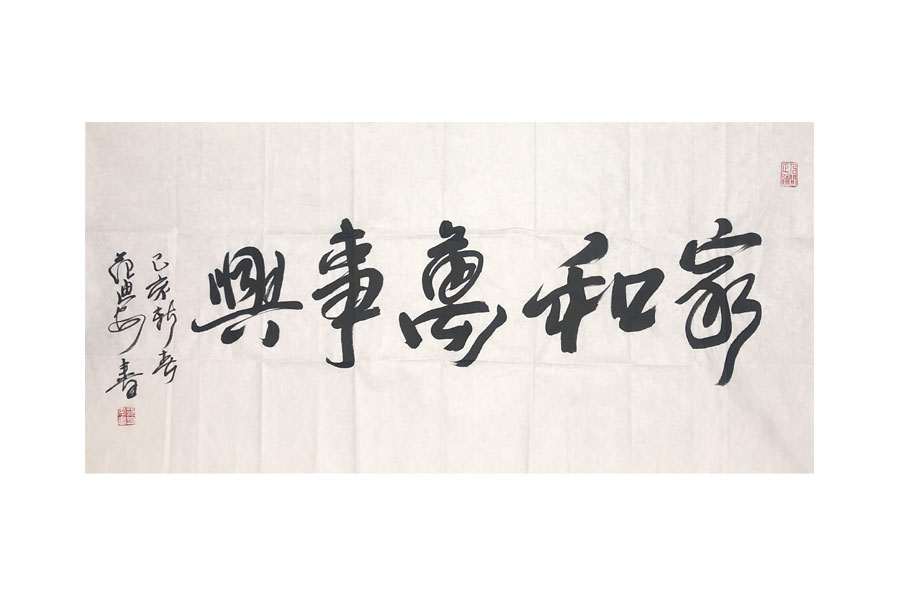 家和萬事興
己亥新春
范迪安書